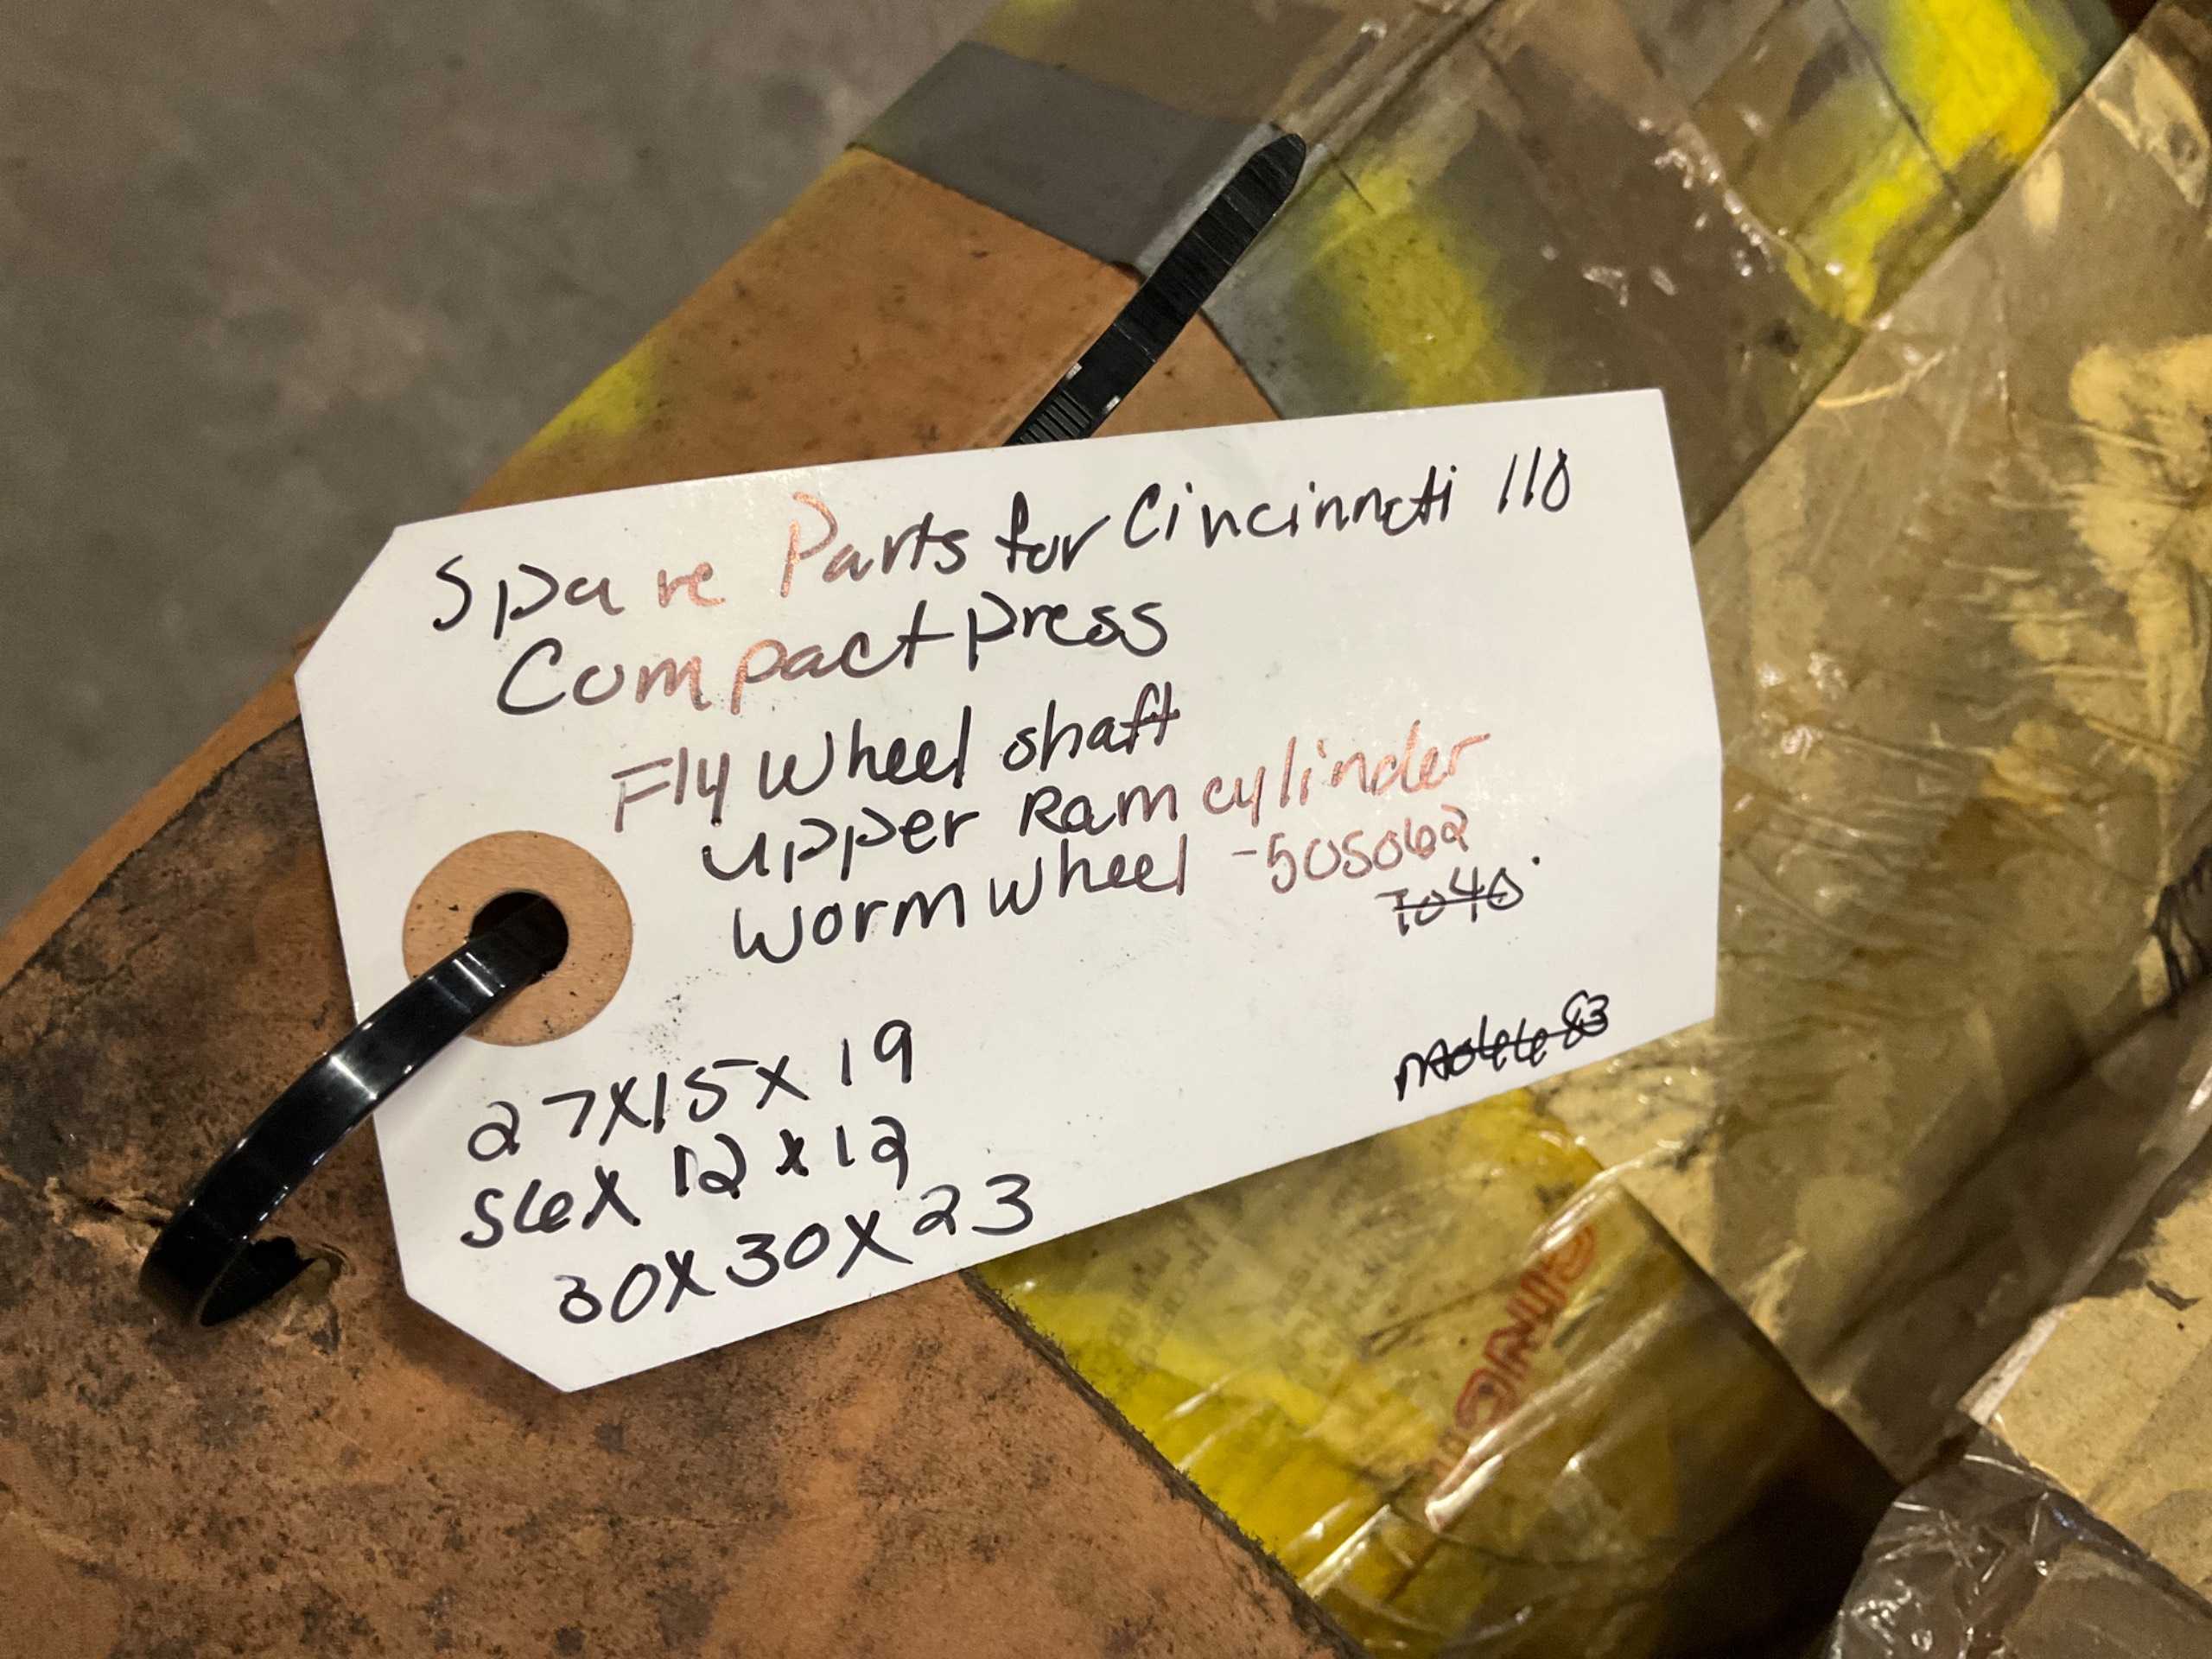 Spare Parts for Cincinnati 110
Compact press
Fly wheel shaft
upper Ram cylinder
Worm wheel - 505062
7040
27x15x19
56x12x12
30x30x23